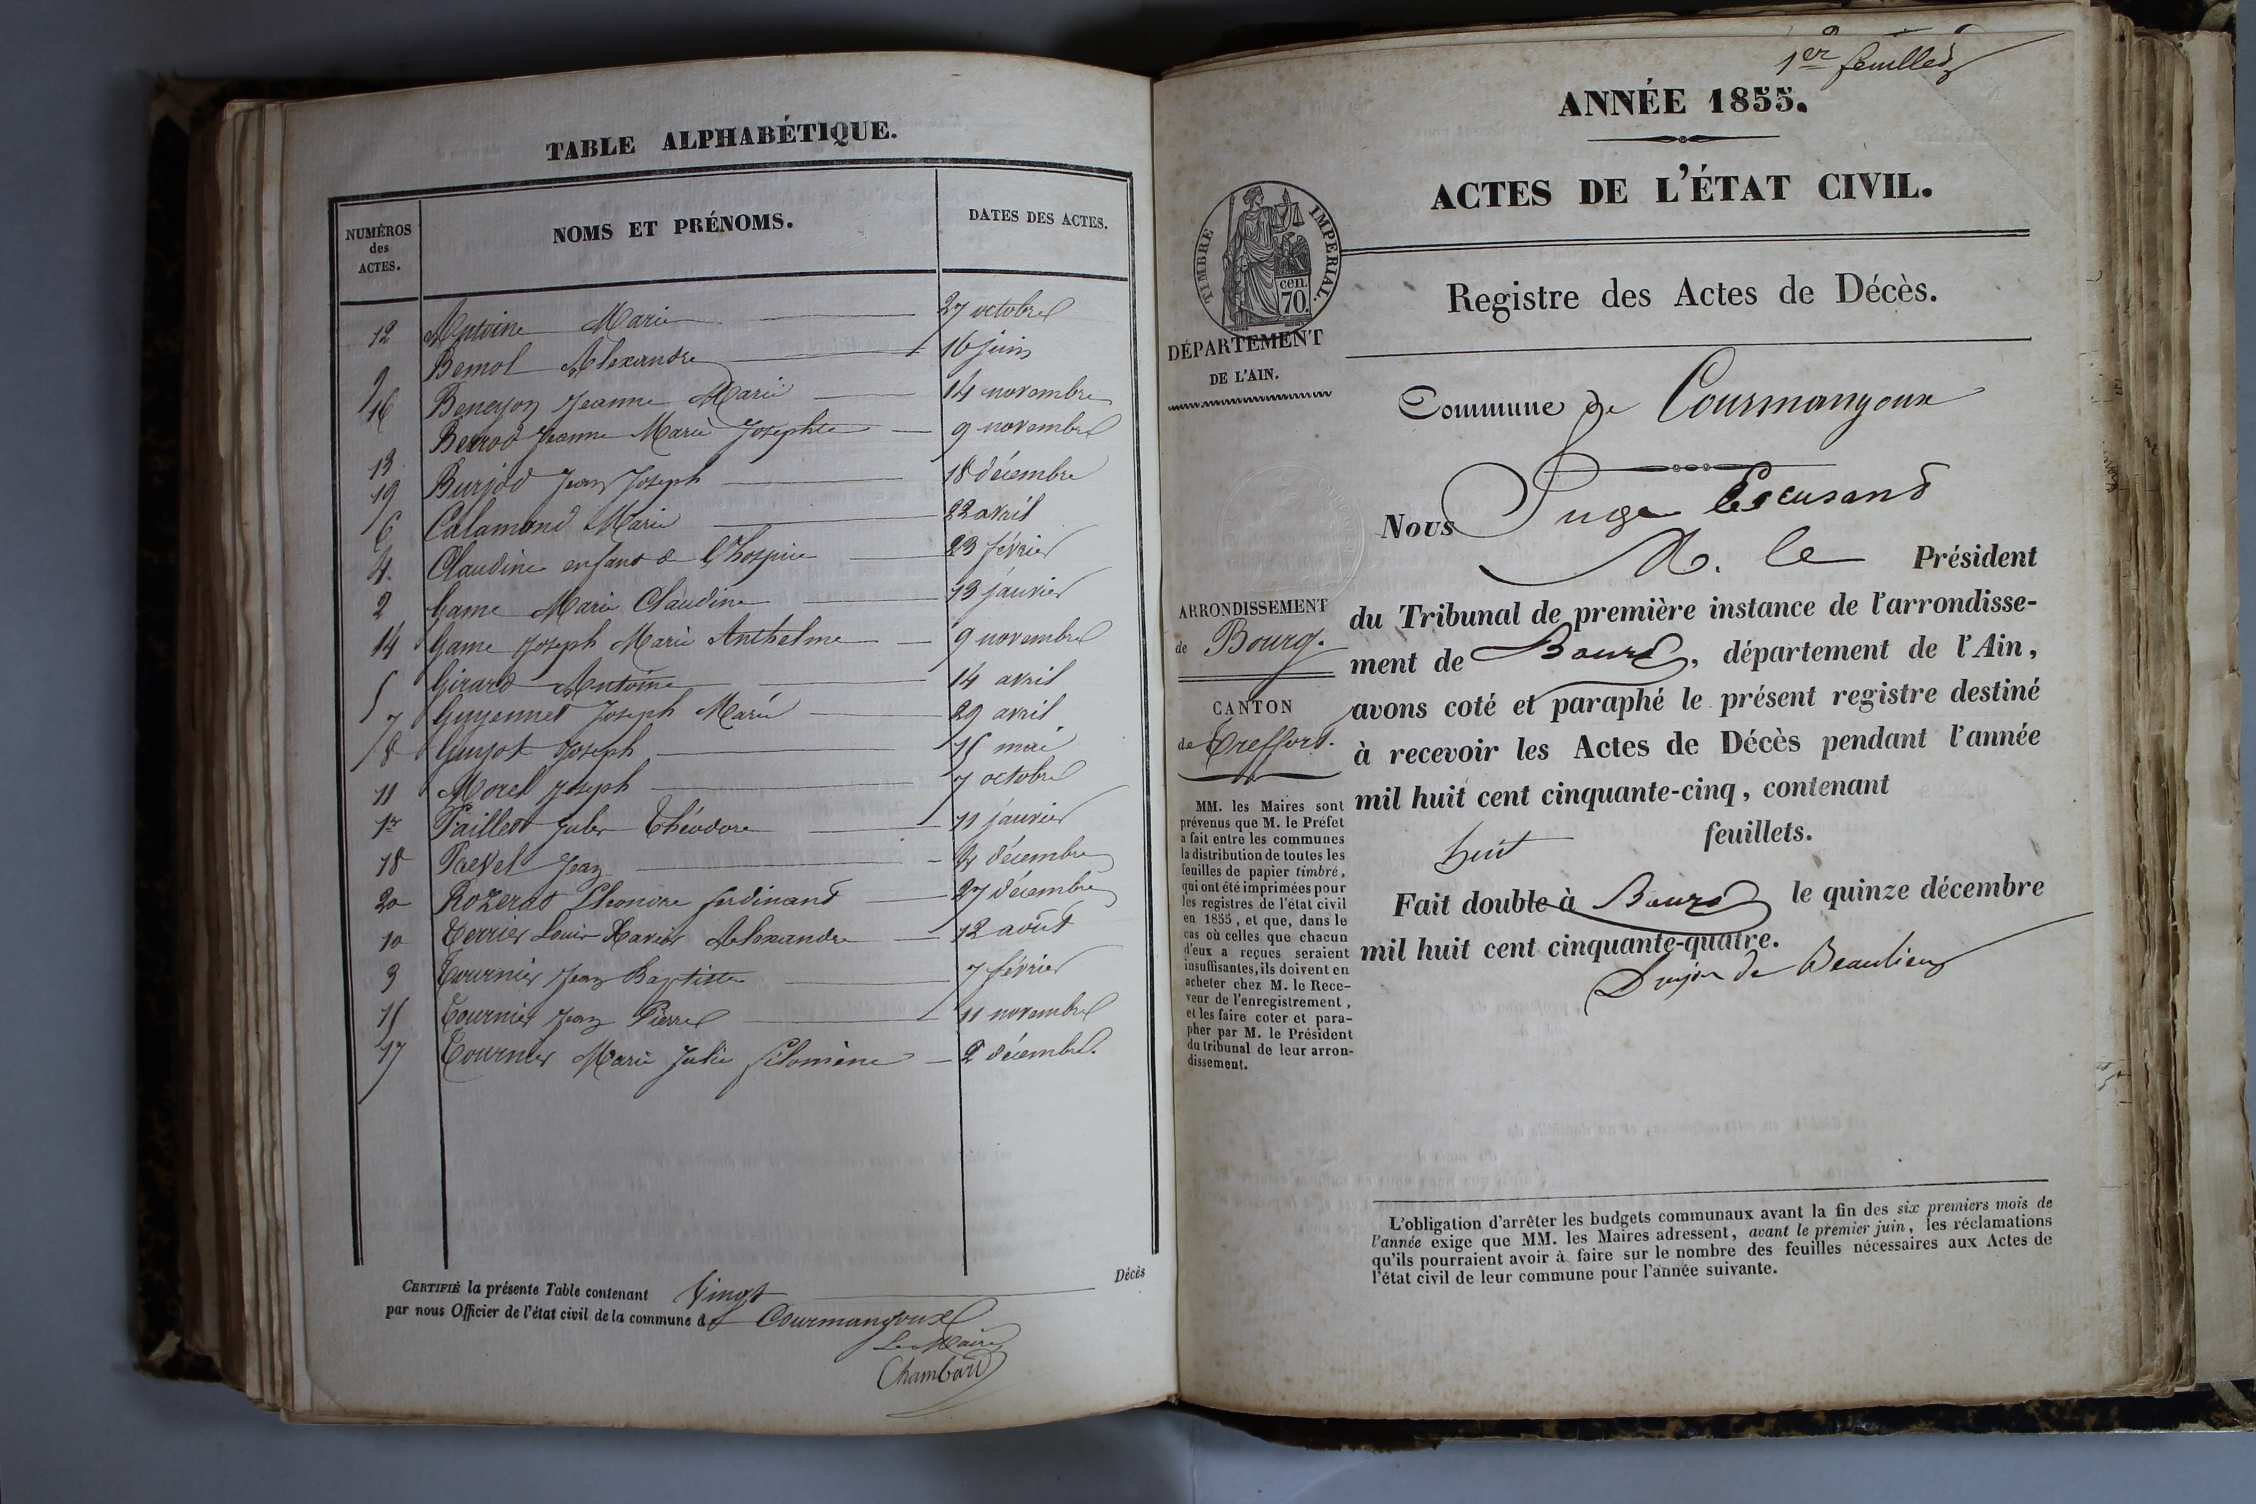 TABLE ALPHABÉTIQUE.
NUMÉROS des ACTES. NOMS ET PRÉNOMS. DATES DES ACTES.
12 Antoine Marie 27 octobre
9 Bemol Alexandre 16 juin
16 Jeanne Marie 14 novembre
13 Jeanne Marie Josephte 9 novembre
19 Burjod Jean Joseph 18 décembre
6 Calamand Marie 22 avril
4. Claudine enfant de l'hospice 23 février
2 Game Marie Claudine 13 janvier
14 Game Joseph Marie Anthelme 9 novembre
5 Girard Antoine 14 avril
7 Guyennet Joseph Marie 29 avril
8 Guyot Joseph 15 mai
11 Morel Joseph 7 octobre
1er Jules Théodore 11 janvier
18 Jean 4 décembre
20 Rozerat Eléonore ferdinand 27 décembre
10 Terrier Louis Xavier Alexandre 12 août
3 Tournier Jean Baptiste 7 février
15 Tournier Jean Pierre 11 novembre
17 Tournier Marie Julie filomène 2 décembre.
CERTIFIÉ la présente Table contenant Vingt Décès
par nous Officier de l'état civil de la commune de Courmangoux
Le Maire
Chambard
1er feuillet
ANNÉE 1855.
ACTES DE L'ÉTAT CIVIL.
TIMBRE IMPERIAL.
cen.
70.
Registre des Actes de Décès.
DÉPARTEMENT
DE L'AIN.
Commune de Courmangoux
Nous Juge
M. le Président
du Tribunal de première instance de l'arrondisse-
ment de Bourg, département de l'Ain,
avons coté et paraphé le présent registre destiné
à recevoir les Actes de Décès pendant l'année
mil huit cent cinquante-cinq, contenant
huit feuillets.
Fait double à Bourg le quinze décembre
mil huit cent cinquante-quatre.
de Beaulieu
ARRONDISSEMENT
de Bourg.
CANTON
de Treffort.
MM. les Maires sont
prévenus que M. le Préfet
a fait entre les communes
la distribution de toutes les
feuilles de papier timbré,
qui ont été imprimées pour
les registres de l'état civil
en 1855, et que, dans le
cas où celles que chacun
d'eux a reçues seraient
insuffisantes, ils doivent en
acheter chez M. le Rece-
veur de l'enregistrement,
et les faire coter et para-
pher par M. le Président
du tribunal de leur arron-
dissement.
L'obligation d'arrêter les budgets communaux avant la fin des six premiers mois de
l'année exige que MM. les Maires adressent, avant le premier juin, les réclamations
qu'ils pourraient avoir à faire sur le nombre des feuilles nécessaires aux Actes de
l'état civil de leur commune pour l'année suivante.